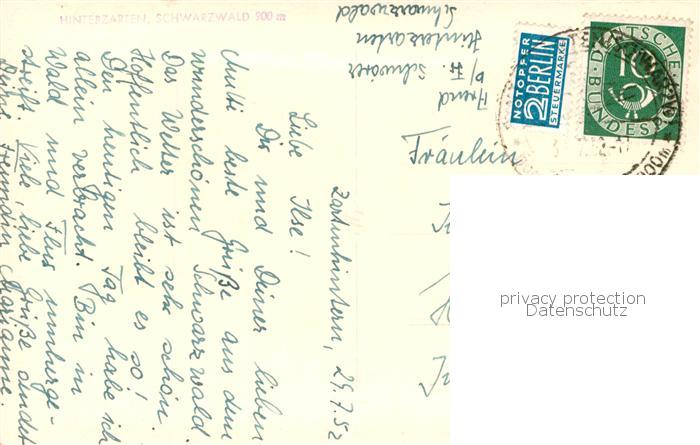 HINTERZARTEN, SCHWARZWALD 900 m
Zartenhintern, 29.7.52
Liebe Ilse!
Dir und Deiner lieben
Mutti beste Grüße aus dem
wunderschönen Schwarzwald.
Das Wetter ist sehr schön.
Hoffentlich bleibt es so!
Den heutigen Tag habe ich
allein verbracht. Bin in
Wald und Flur umherge-
streift. Viele, liebe Grüße sendet
Deine Freundin Marianne.
b/ Schwörer
Hinterzarten
Schwarzwald
NOTOPFER
2 BERLIN
STEUERMARKE
DEUTSCHE
10
BUNDESPOST
Fräulein
privacy protection
Datenschutz